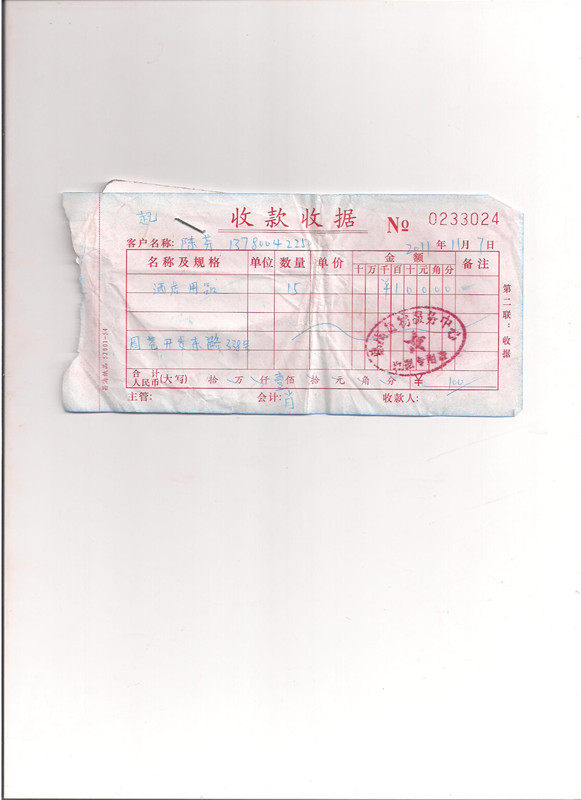 收款收据 № 0233024
客户名称: 陈芳 13780042250 2011 年 11 月 7 日
名称及规格 单位 数量 单价 金额 备注
十 万 千 百 十 元 角 分
酒店用品 15 ¥10000
开发东路338号
合计
人民币(大写) 拾 万 仟 壹佰 拾 元 角 分 ¥ 100
主管: 会计: 收款人:
第二联:收据